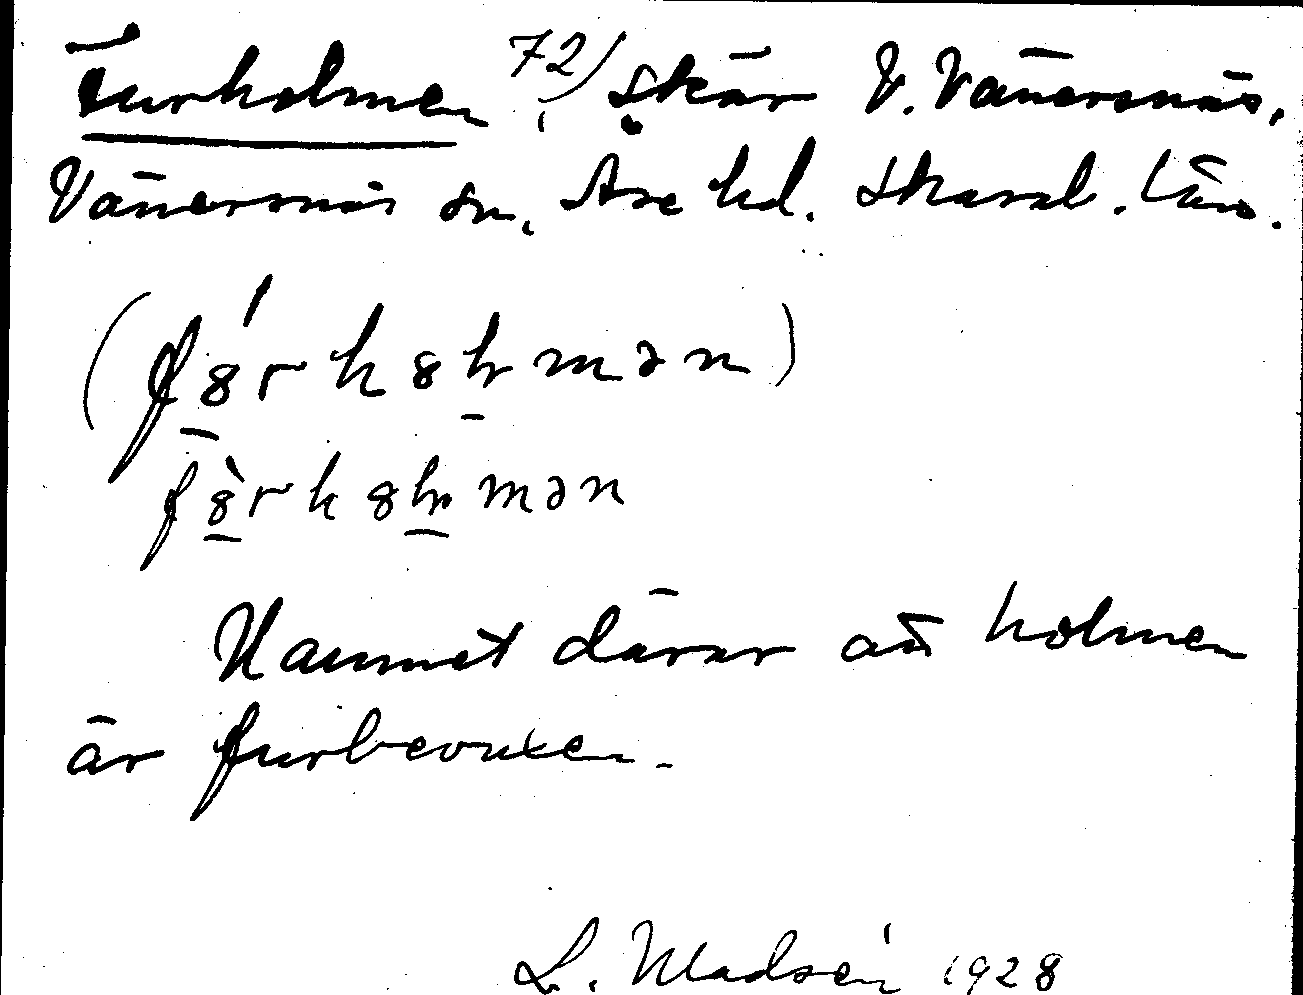 Furholmen, 72/ skär V. Vänersnäs,
Vänersnäs sn, Åse hd. Skarab. län.
(fȣrhȣłmən)
fȣ̀rhȣłmən
Namnet därav att holmen
är furbevuxen.
L. Madsén 1928